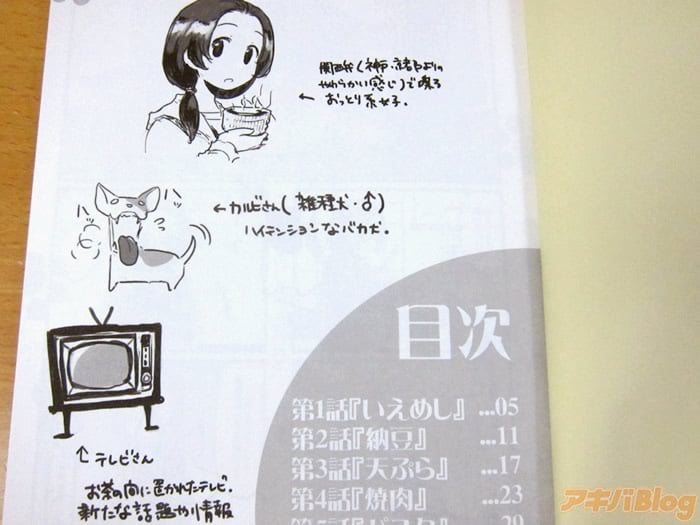 関西弁(神戸・京都よりの
やわらかい感じ)で喋る
← おっとり系女子.
ハッ
ハッ
←カルビさん(雑種犬・♂)
ハイテンションなバカ犬.
↑テレビさん
お茶の間に置かれたテレビ.
新たな話題や小情報
目次
第1話『いえめし』 …05
第2話『納豆』 …11
第3話『天ぷら』 …17
第4話『焼肉』 …23
…29
アキバBlog